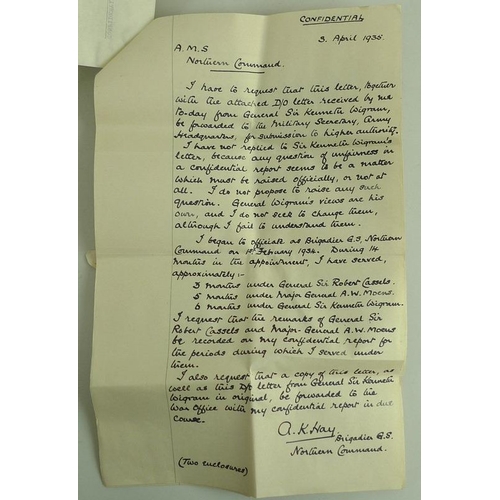 CONFIDENTIAL
3. April 1935.
A.M.S
Northern Command.
I have to request that this letter, together
with the attached D/O letter received by me
to-day from General Sir Kenneth Wigram,
be forwarded to the Military Secretary, Army
Headquarters, for submission to higher authority.
I have not replied to Sir Kenneth Wigram's
letter, because any question of unfairness in
a confidential report seems to be a matter
which must be raised officially, or not at
all. I do not propose to raise any such
question. General Wigram's views are his
own, and I do not seek to change them,
although I fail to understand them.
I began to officiate as Brigadier G.S, Northern
Command on 1st February 1934. During 14
months in the appointment, I have served,
approximately:-
3 months under General Sir Robert Cassels.
5 months under Major General A.W. Moens.
6 months under General Sir Kenneth Wigram.
I request that the remarks of General Sir
Robert Cassels and Major-General A.W. Moens
be recorded on my confidential report for
the periods during which I served under
them.
I also request that a copy of this letter, as
well as this D/O letter from General Sir Kenneth
Wigram in original, be forwarded to the
War Office with my confidential report in due
course.
A.K. Hay
Brigadier G.S.
Northern Command.
(Two enclosures)